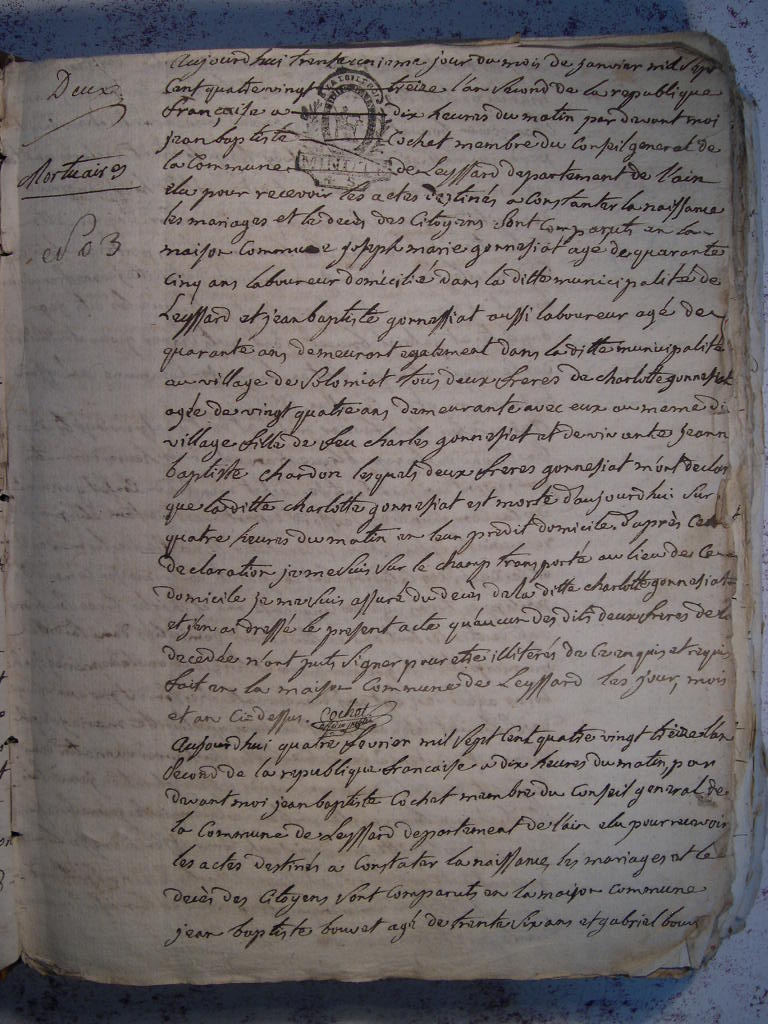 Deux
Mortuaires
N° 3
Aujourdhui trente unieme jour du mois de janvier mil sept
Cent quatre vingt treize l'an second de la republique
française a dix heures du matin par devant moi
jean baptiste Cochet membre du Conseil general de
la Commune de Leyssard departement de l'ain
elu pour recevoir les actes destinés a Constater la naissance
les mariages et le decès des Citoyens sont Comparuts en la
maison Commune joseph marie gonnessiat agé de quarante
Cinq ans laboureur domicilie dans la ditte municipalité de
Leyssard et jean baptiste gonnessiat aussi laboureur agé de
quarante ans demeurant egalement dans la ditte municipalité
au village de Solomiat tous deux freres de charlotte gonnessiat
agée de vingt quatre ans demeurante avec eux au meme di
village fille de feu charles gonnesiat et de vivante jeann
baptiste chardon lesquels deux freres gonnesiat m'ont declar
que la ditte charlotte gonnesiat est morte d'aujourdhui sur
quatre heures du matin en leur predit domicile. d'après Cette
declaration je me suis sur le champ transporté au lieu de Ce
domicile je me suis assuré du decès de la ditte charlotte gonnesiat
et j'en ai dressé le present acte qu'aucun des dits deux freres de la
decedée n'ont puts signer pour etre illiterés de Ce enquis et requis
fait en la maison Commune de Leyssard les jour, mois
et an Ci dessus. Cochet
Aujourdhui quatre fevrier mil sept Cent quatre vingt treize l'an
second de la republique francaise a dix heures du matin, par
devant moi jean baptiste Cochet membre du Conseil general de
la Commune de Leyssard departement de l'ain elu pour recevoir
les actes destinés a Constater la naissance, les mariages et le
decès des Citoyens sont Comparuts en la maison Commune
jean baptiste bouvet agé de trente six ans et gabriel bouv